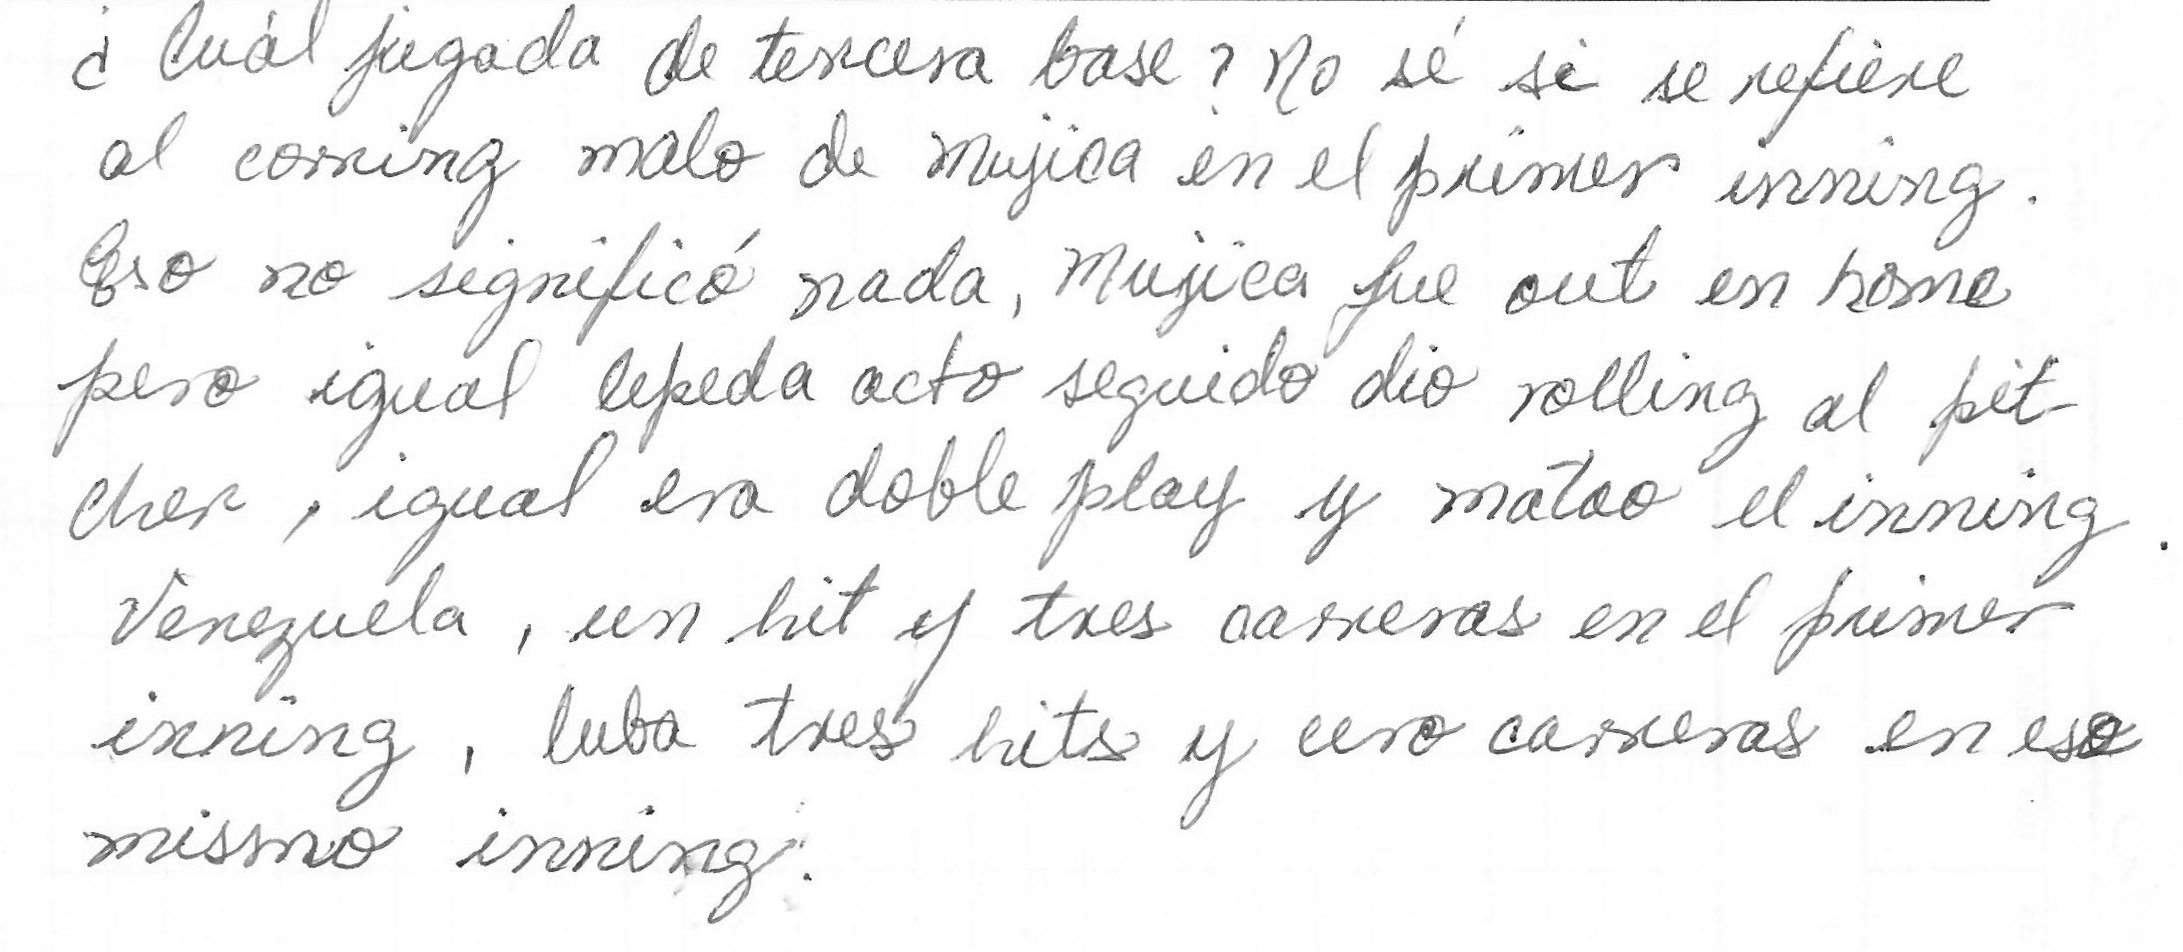 ¿Cuál jugada de tercera base? No sé si se refiere
al corring malo de Mujica en el primer inning.
Eso no significó nada, Mujica fue out en home
pero igual Cepeda acto seguido dio rolling al pit-
cher, igual era doble play y matao el inning.
Venezuela, un hit y tres carreras en el primer
inning, Cuba tres hits y cero carreras en ese
mismo inning.